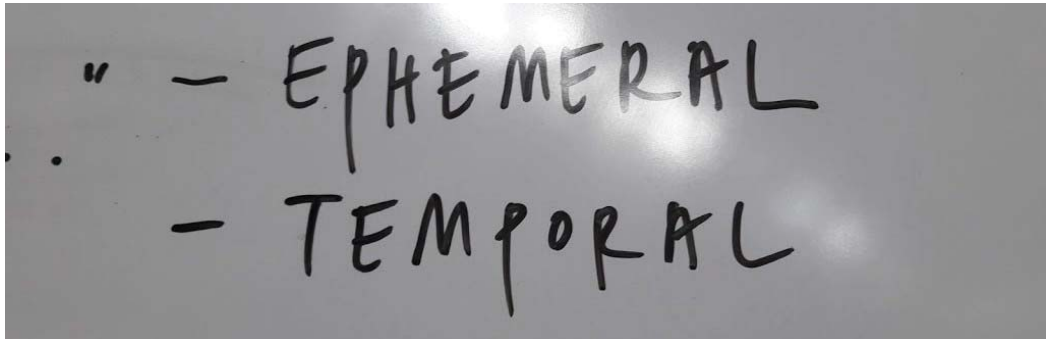 " - EPHEMERAL
..
- TEMPORAL